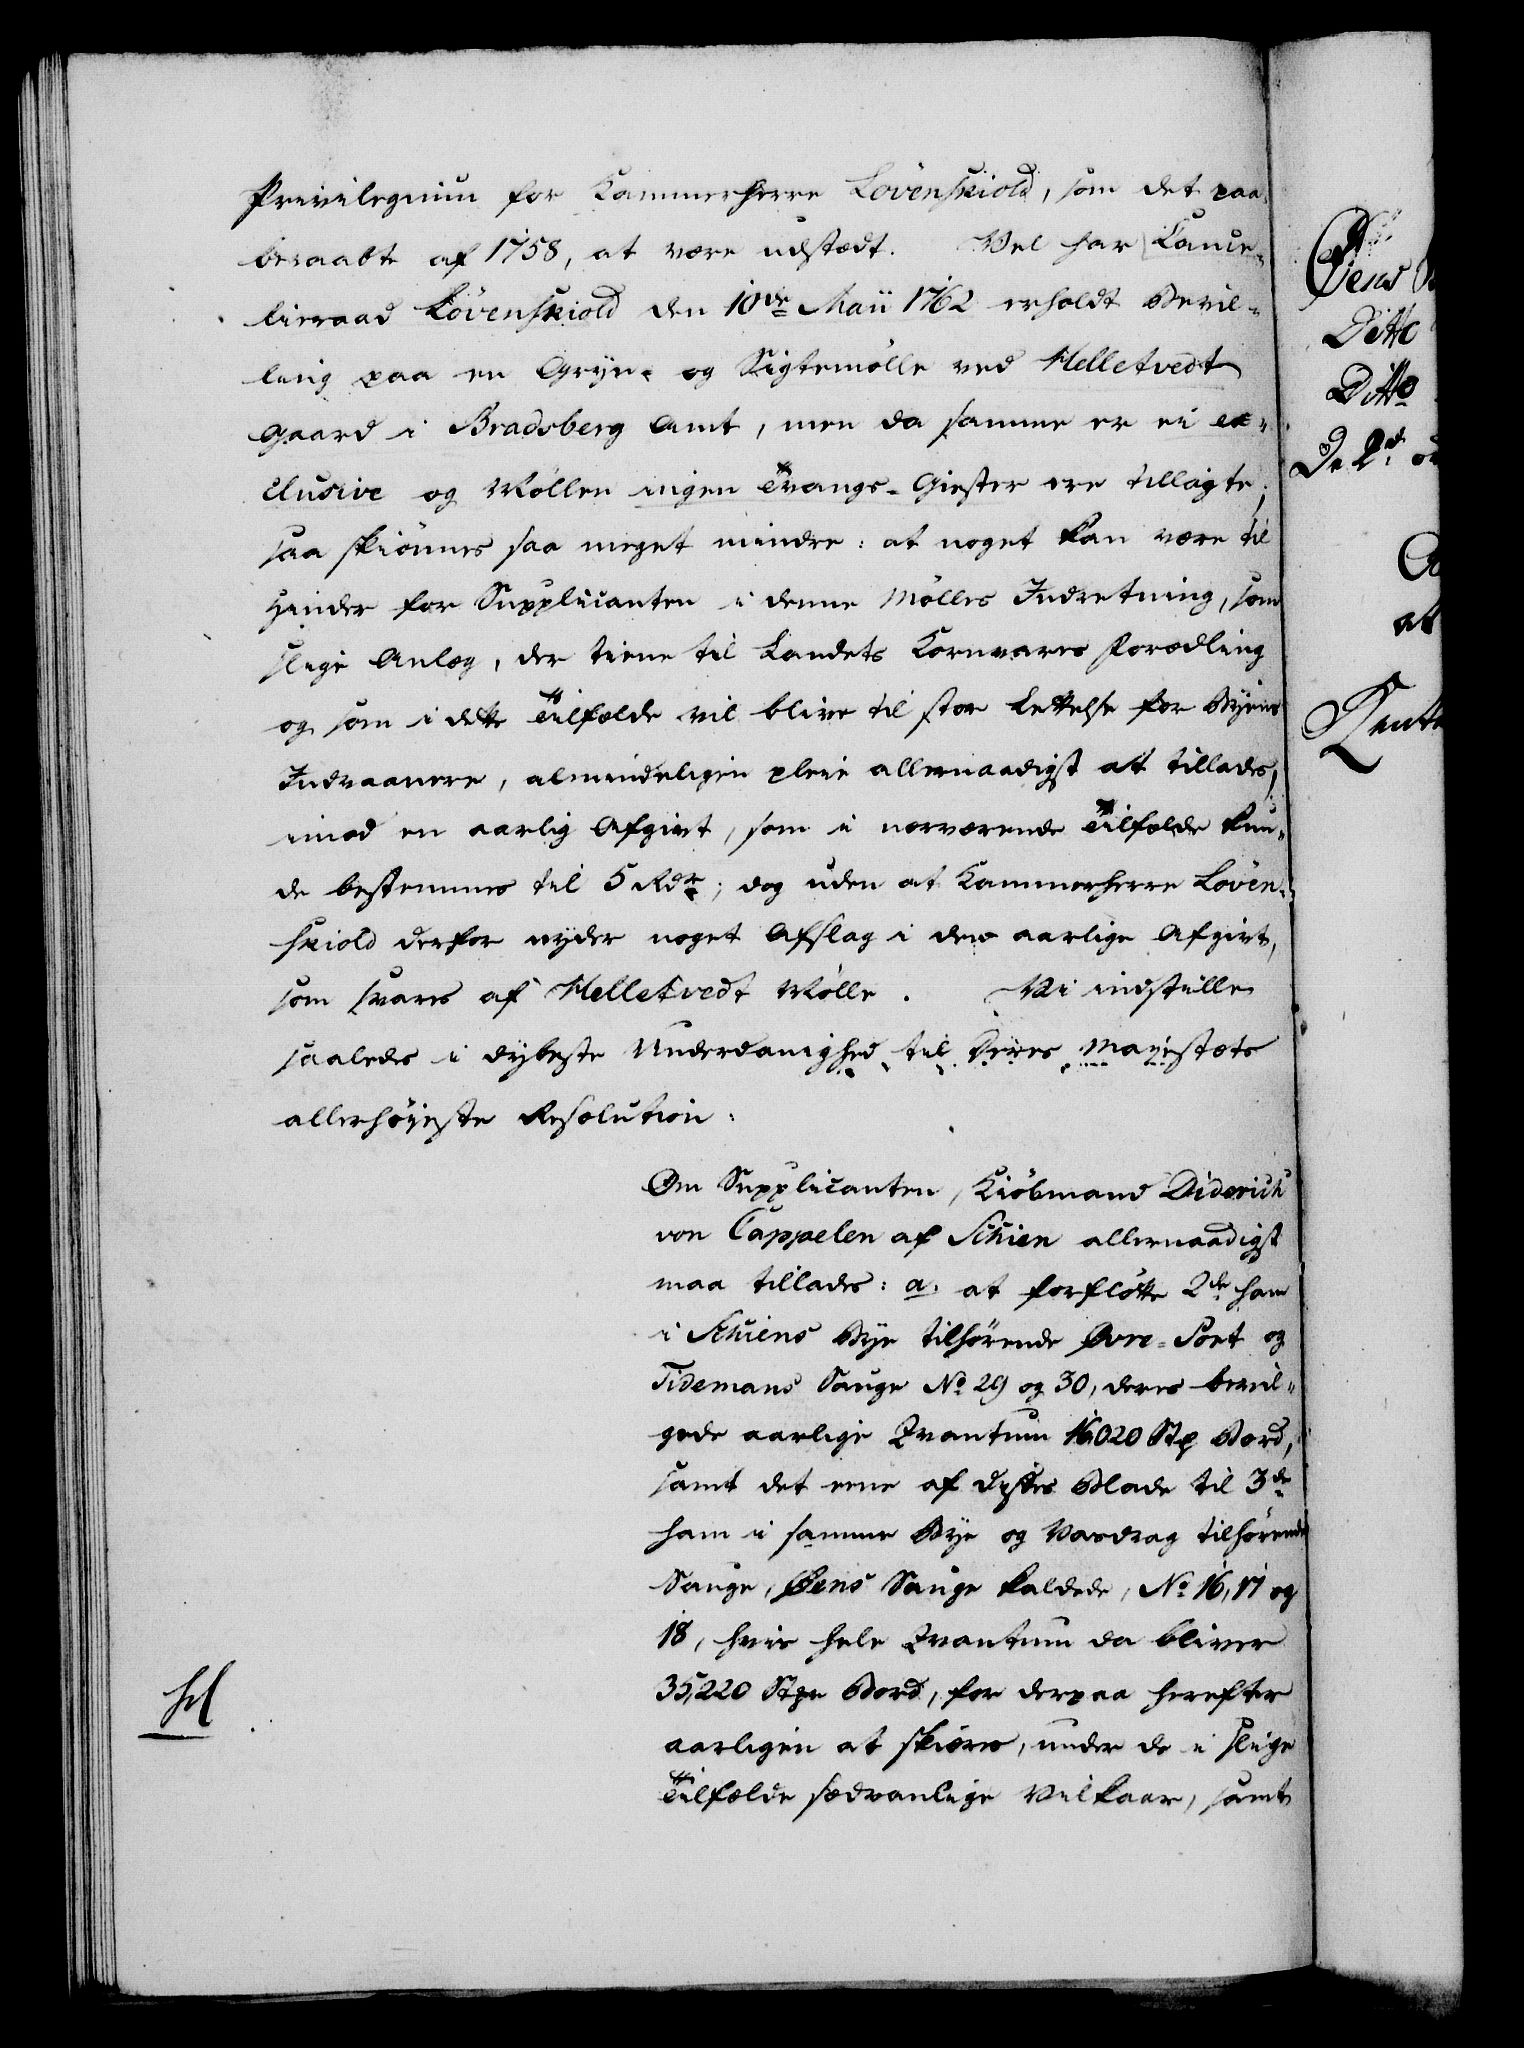 Privilegium for Kammerherre Lövenskiold, som det paa-
beraabte af 1758, at være udstædt. Vel har Cance-
lieraad Lövenskiold den 10de Maii 1762 erholdt Bevil-
ling paa en Gryn- og Sigtemølle ved Helletvedt
Gaard i Bradsberg Amt, men da samme er ei ex-
clusive og Møllen ingen Tvangs-Giester ere tillagte;
saa skiønnes saa meget mindre: at noget kan være til
Hinder for Supplicanten i denne Mølles Indretning, som
slige Anlæg, der tiene til Landets Kornvares Forædling
og som i dette Tilfælde vil blive til stor Lettelse for Byens
Indvaanere, almindeligen pleie allernaadigst at tillades,
imod en aarlig Afgivt, som i nærværende Tilfælde kun-
de bestemmes til 5 Rdr; dog uden at Kammerherre Löven-
skiold derfor nyder noget Afslag i den aarlige Afgivt,
som svares af Helletvedt Mølle. Vi indstille
saaledes i dybeste Underdanighed til Deres Majestæts
allerhøyeste Resolution:
Om Supplicanten, Kiøbmand Diderich
von Cappelen af Schien allernaadigst
maa tillades: a. at forfløtte 2de ham
i Schiens Bye tilhørende Øvre-Fort og
Tidemans Sauge No 29 og 30, deres bevil-
gede aarlige Qvantum 16,020 Stp Bord,
samt det eene af disses Blade til 3de
ham i samme Bye og Vasdrag tilhørende
Sauge, Øens Sauge kaldede, No 16, 17 og
18, hvis hele Qvantum da bliver
35,220 Stpr Bord, for derpaa herefter
aarligen at skiæres, under de i slige
Tilfælde sædvanlige Vilkaar, samt
Ditto
Ditto
at